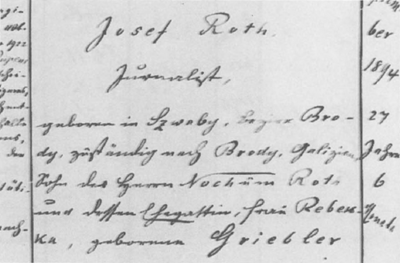 Josef Roth.
Jurnalist,
geboren in Szwaby, Bezirk Bro-
dy, zuständig nach Brody, Galizien,
Sohn des Herrn Nochüm Roth
und dessen Ehegattin, Frau Rebek-
ka, geborenen Griebler
ber
1894
27
Jahre
6
Monate